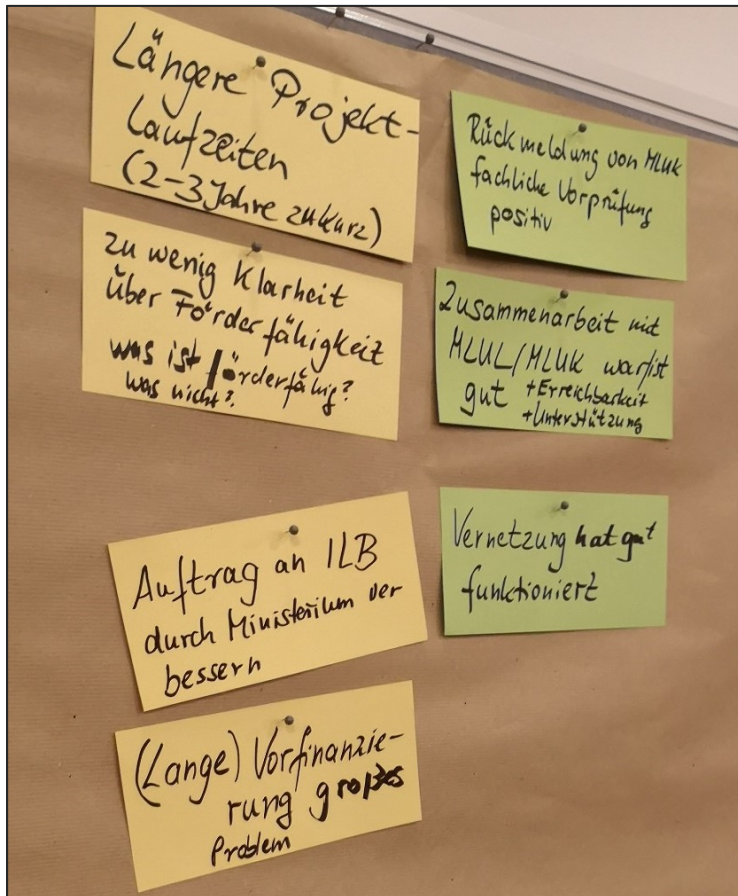 Längere Projekt-
Laufzeiten
(2-3 Jahre zu kurz)
zu wenig Klarheit
über Förderfähigkeit
was ist förderfähig?
was nicht?
Auftrag an ILB
durch Ministerium ver
bessern
(Lange) Vorfinanzie-
rung großes
Problem
Rückmeldung von MLUK
fachliche Vorprüfung
positiv
Zusammenarbeit mit
MLUL/MLUK war/ist
gut +Erreichbarkeit
+Unterstützung
Vernetzung hat gut
funktioniert